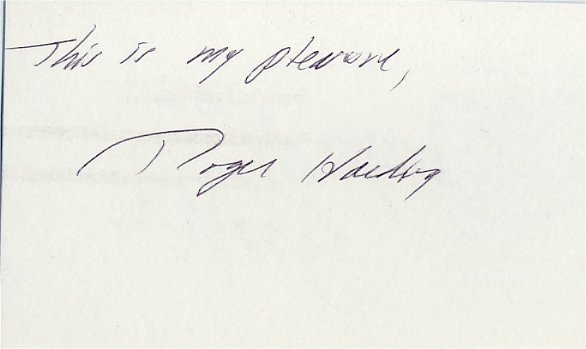 This is my pleasure,
Roger